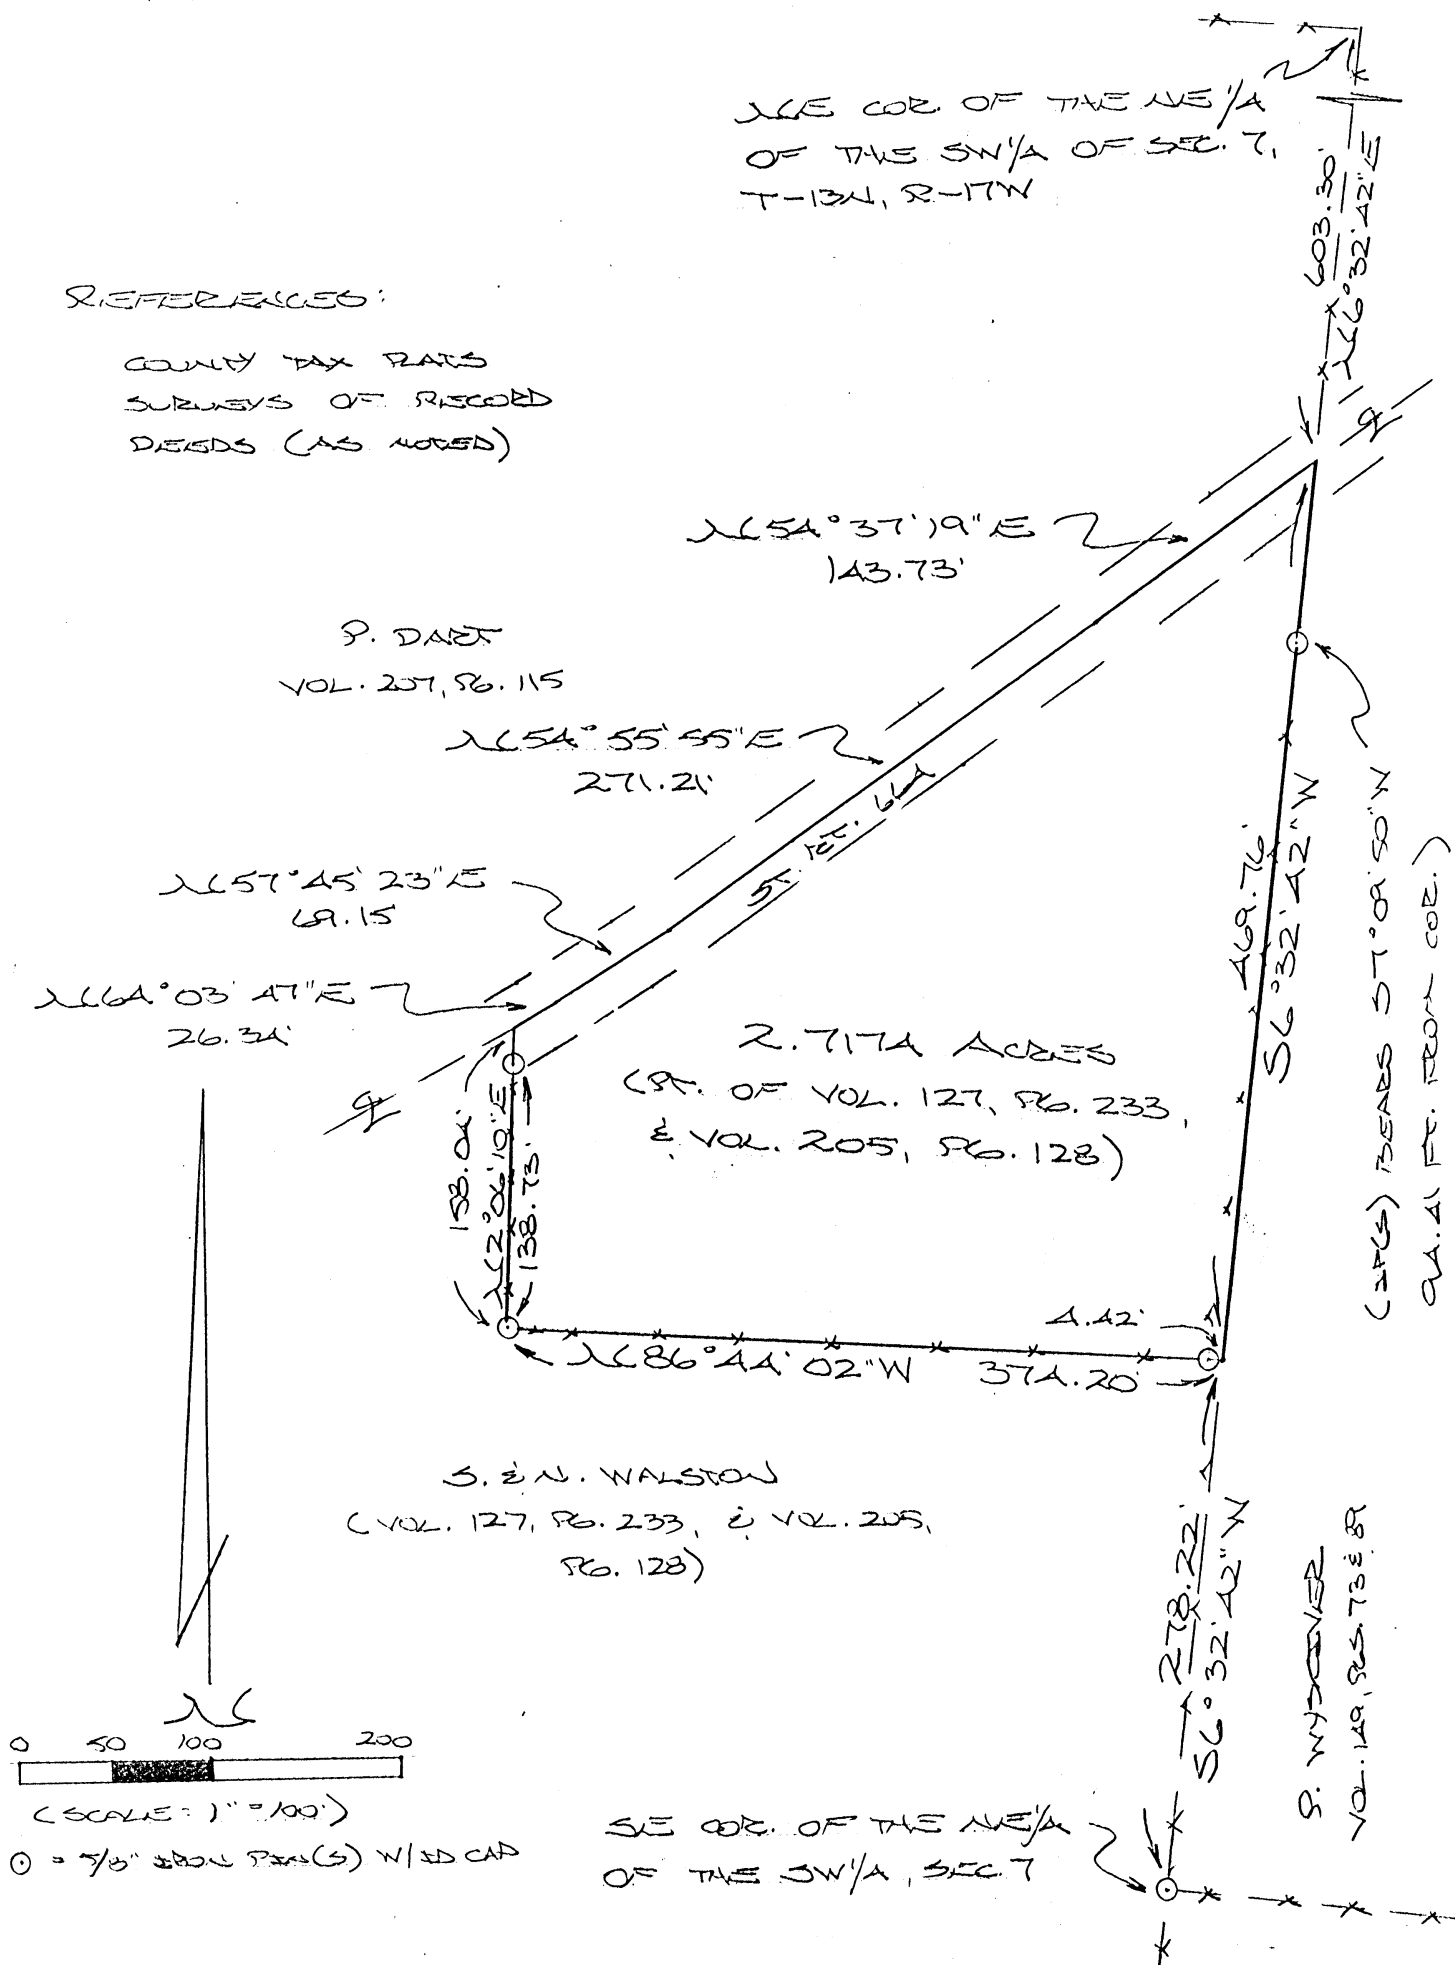 NE COR. OF THE NE 1/4
OF THE SW 1/4 OF SEC. 7,
T-13N, R-17W
603.30'
N6°32'42"E
REFERENCES:
COUNTY TAX PLATS
SURVEYS OF RECORD
DEEDS (AS NOTED)
N54°37'19"E
143.73'
P. DART
VOL. 207, PG. 115
N54°55'55"E
271.21'
ST. RT. 664
N57°45'23"E
69.15'
N64°03'47"E
26.34'
2.7174 ACRES
(PT. OF VOL. 127, PG. 233,
& VOL. 205, PG. 128)
469.76'
S6°32'42"W
(IP(S) BEARS S7°09'50"W
94.41 FT. FROM COR.)
153.04'
N2°06'10"E
138.73'
4.42'
N86°44'02"W 374.20'
S. & N. WALSTON
(VOL. 127, PG. 233, & VOL. 205,
PG. 128)
278.22'
S6°32'42"W
VOL. 149, PGS. 73 & 89
N
0 50 100 200
(SCALE: 1" = 100')
= 5/8" IRON PIN(S) W/ID CAP
SE COR. OF THE NE 1/4
OF THE SW 1/4, SEC. 7